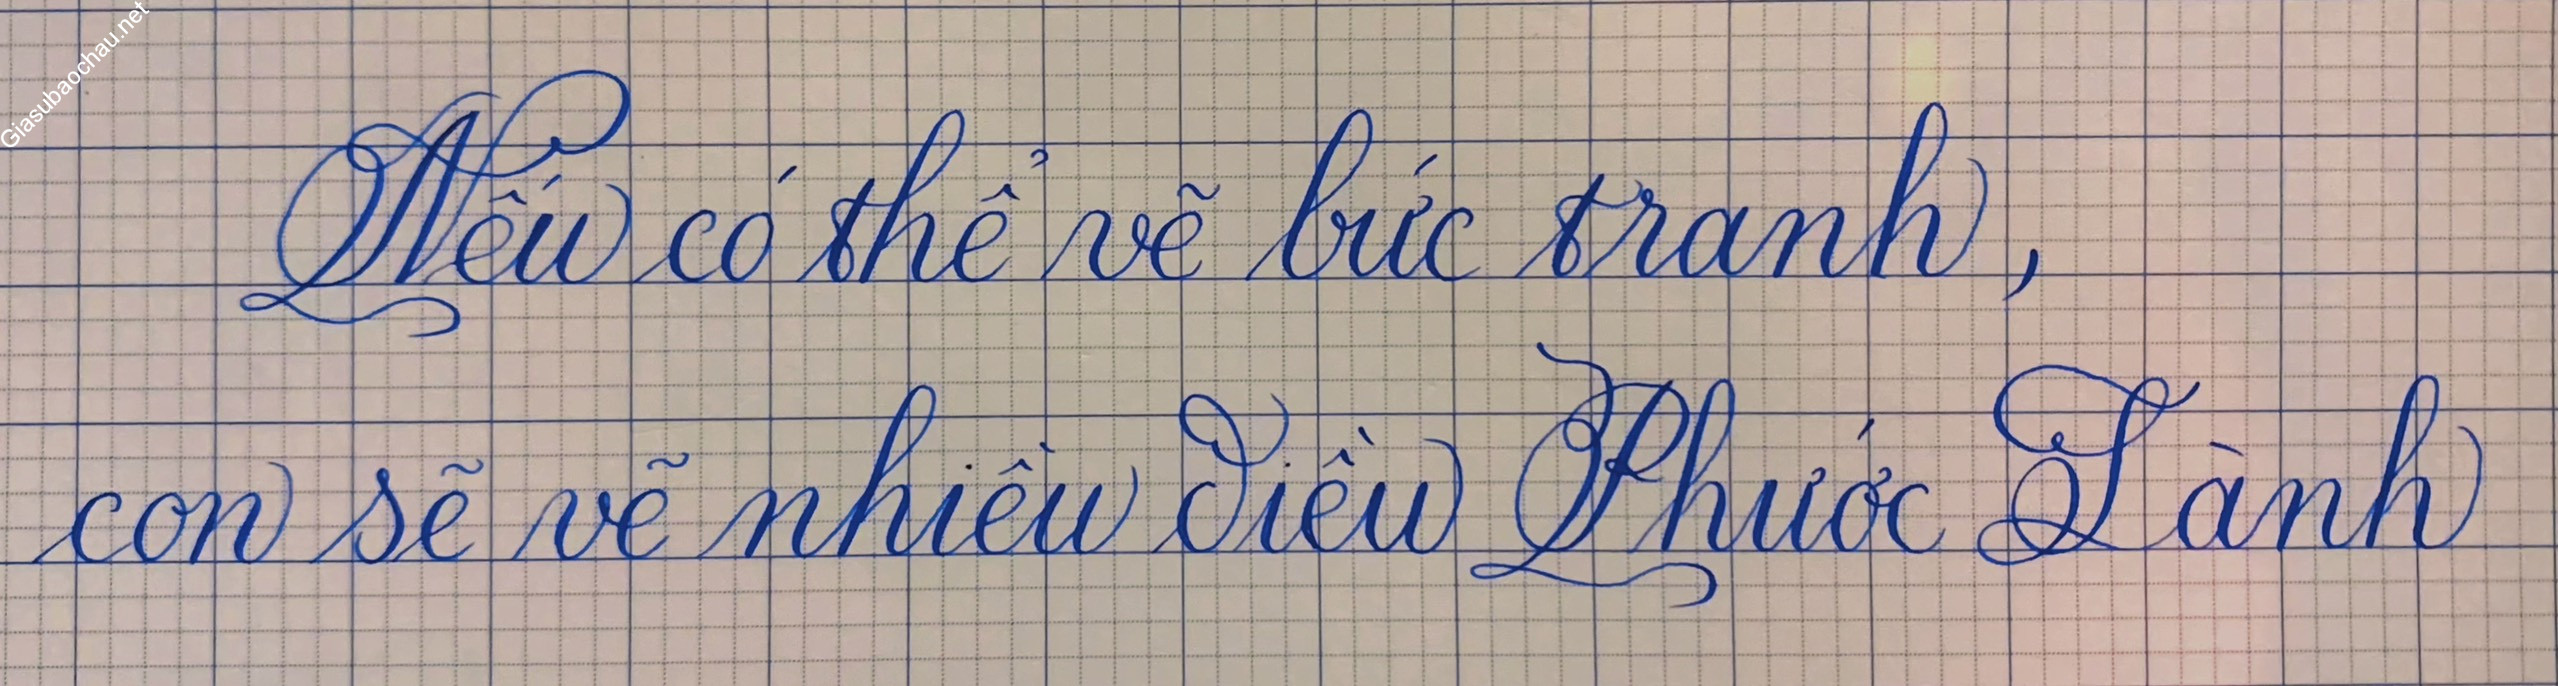 Giasubaochau.net
Nếu có thể vẽ bức tranh,
con sẽ vẽ nhiều điều Phước Lành